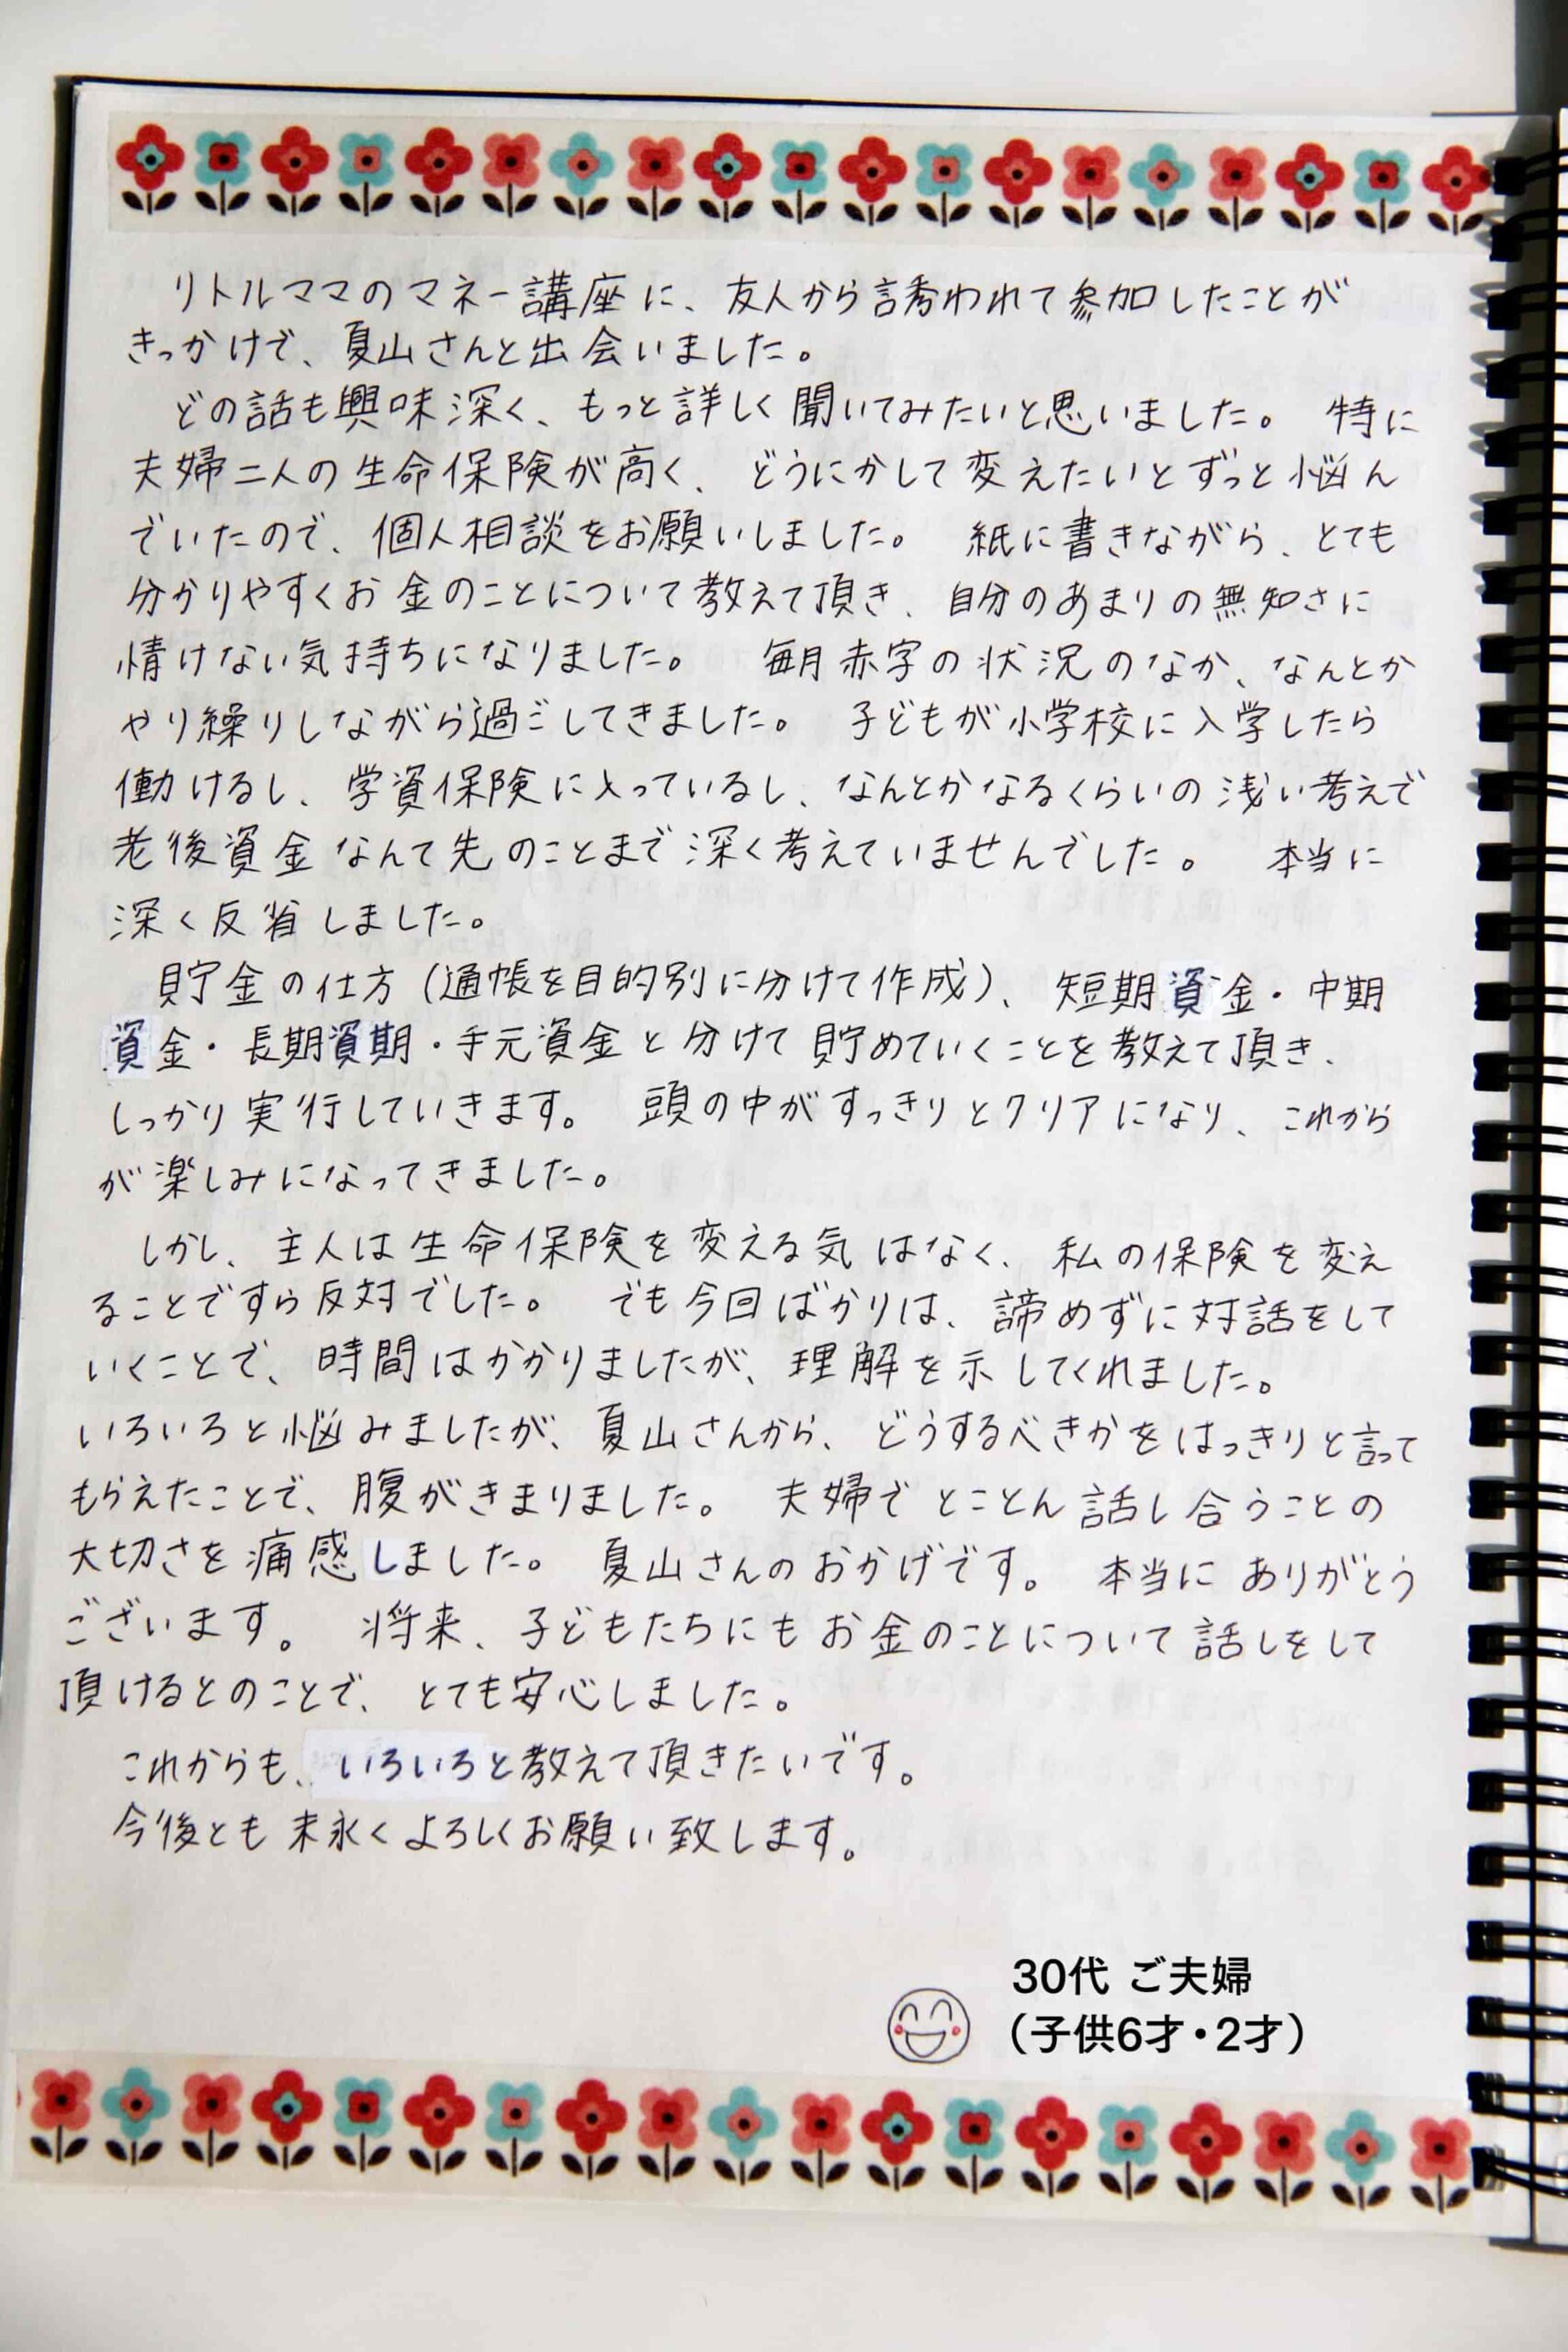 リトルママのマネー講座に、友人から誘われて参加したことが
きっかけで、夏山さんと出会いました。
どの話も興味深く、もっと詳しく聞いてみたいと思いました。 特に
夫婦二人の生命保険が高く、どうにかして変えたいとずっと悩ん
でいたので、個人相談をお願いしました。 紙に書きながら、とても
分かりやすくお金のことについて教えて頂き、自分のあまりの無知さに
情けない気持ちになりました。 毎月赤字の状況のなか、なんとか
やり繰りしながら過ごしてきました。 子どもが小学校に入学したら
働けるし、学資保険に入っているし、なんとかなるくらいの浅い考えで
老後資金なんて先のことまで深く考えていませんでした。 本当に
深く反省しました。
貯金の仕方(通帳を目的別に分けて作成)、短期資金・中期
資金・長期資期・手元資金と分けて貯めていくことを教えて頂き、
しっかり実行していきます。 頭の中がすっきりとクリアになり、これから
が楽しみになってきました。
しかし、主人は生命保険を変える気はなく、私の保険を変え
ることですら反対でした。 でも今回ばかりは、諦めずに対話をして
いくことで、時間はかかりましたが、理解を示してくれました。
いろいろと悩みましたが、夏山さんから、どうするべきかをはっきりと言って
もらえたことで、腹がきまりました。 夫婦でとことん話し合うことの
大切さを痛感しました。 夏山さんのおかげです。 本当にありがとう
ございます。 将来、子どもたちにもお金のことについて話しをして
頂けるとのことで、とても安心しました。
これからも、いろいろと教えて頂きたいです。
今後とも末永くよろしくお願い致します。
30代 ご夫婦
(子供6才・2才)